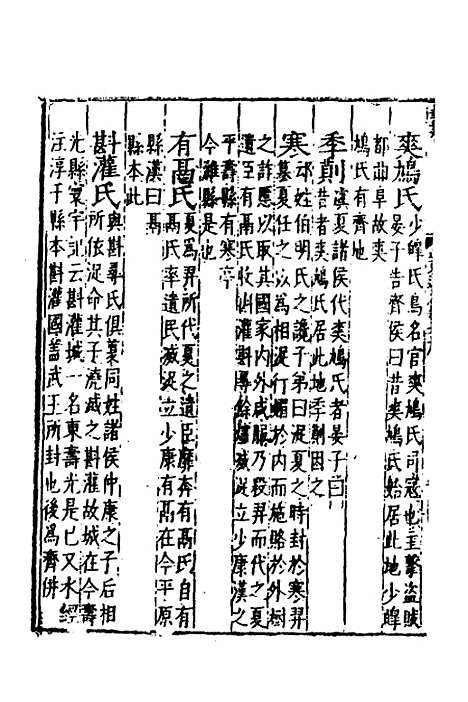 爽鳩氏少皥氏鳥名官爽鳩氏司冦也主擊盜賊
都曲阜故爽晏子告齊侯曰昔爽鳩氏始居此地少皥
鳩氏有齊地
季萴虞夏諸侯代爽鳩氏者晏子曰
昔者爽鳩氏居此地季萴因之
寒邳姓伯明氏之讒子弟曰浞夏之時封於寒羿
篡夏任之以為相浞行媚於内而施賂於外樹
之詐慝以取其國家内外咸服乃殺羿而代之夏
遺臣有鬲氏收斟灌斟尋餘燼滅浞立少康漢之
平壽縣有寒亭
今濰縣是也
有鬲氏夏為羿所代夏之遺臣靡奔有鬲氏自有
鬲氏率遺民滅浞立少康有鬲在今平原
縣漢曰鬲
縣本此
斟灌氏與斟尋氏俱夏同姓諸侯仲康之子后相
所依浞命其子澆滅之斟灌故城在今壽
光縣寰宇記云斟灌城一名東壽光是已又水經
注淳于縣本斟灌國蓋武王所封也後為齊併